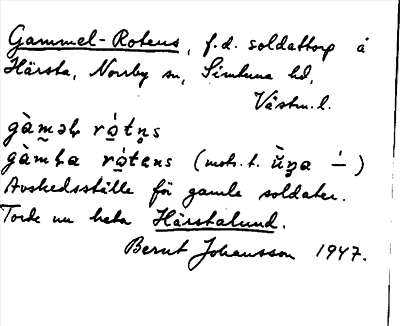 Gammel-Rotens, f.d. soldattorp å
Härsta, Norrby sn, Simtuna hd,
Västm.l.
gàməḷ ró̱tn̥s
gàmḷa ró̱tens (mots. t. ùŋa –́)
Avskedsställe för gamla soldater.
Torde nu heta Härstalund.
Bernt Johansson 1947.